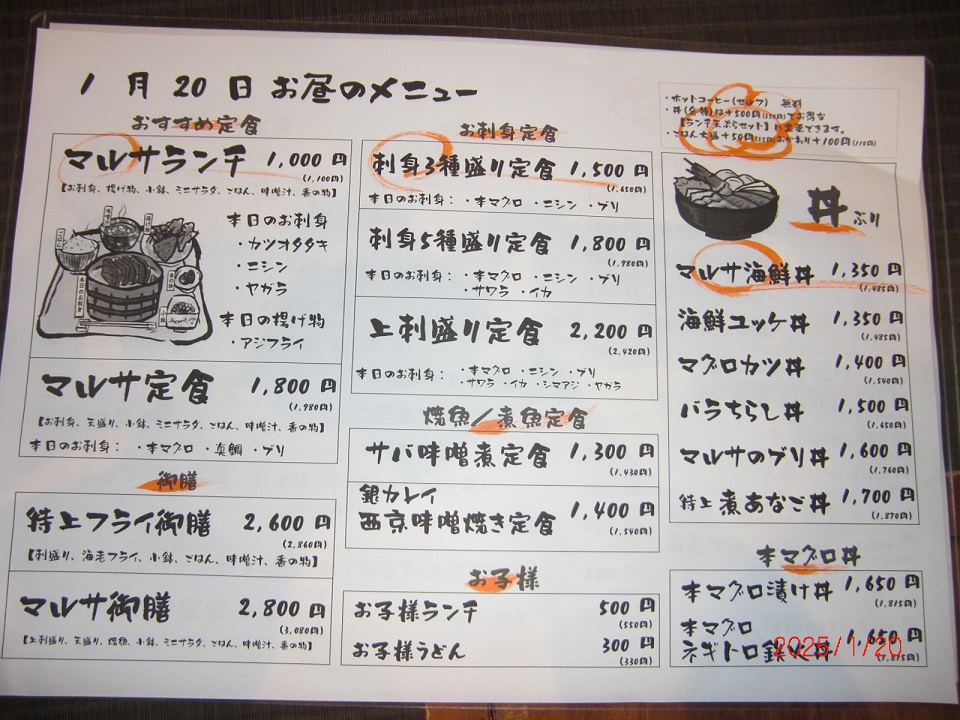 1月20日 お昼のメニュー
おすすめ定食
マルサランチ 1,000円
(1,100円)
【お刺身、揚げ物、小鉢、ミニサラダ、ごはん、味噌汁、香の物】
本日のお刺身
・カツオタタキ
・ニシン
・ヤガラ
本日の揚げ物
・アジフライ
マルサ定食 1,800円
(1,980円)
【お刺身、天盛り、小鉢、ミニサラダ、ごはん、味噌汁、香の物】
本日のお刺身： ・本マグロ ・真鯛 ・ブリ
御膳
特上フライ御膳 2,600円
(2,860円)
【刺盛り、海老フライ、小鉢、ごはん、味噌汁、香の物】
マルサ御膳 2,800円
(3,080円)
【上刺盛り、天盛り、焼魚、小鉢、ミニサラダ、ごはん、味噌汁、香の物】
お刺身定食
刺身3種盛り定食 1,500円
(1,650円)
本日のお刺身： ・本マグロ ・ニシン ・ブリ
刺身5種盛り定食 1,800円
(1,980円)
本日のお刺身： ・本マグロ ・ニシン ・ブリ
・サワラ ・イカ
上刺盛り定食 2,200円
(2,420円)
本日のお刺身： ・本マグロ ・ニシン ・ブリ
・サワラ ・イカ ・シマアジ ・ヤガラ
焼魚／煮魚定食
サバ味噌煮定食 1,300円
(1,430円)
銀カレイ
西京味噌焼き定食 1,400円
(1,540円)
お子様
お子様ランチ 500円
(550円)
お子様うどん 300円
(330円)
・ホットコーヒー(セルフ) 無料
・丼(各種)は＋500円(550円)でお得な
【ランチ天ぷらセット】に変更できます。
・ごはん大盛＋50円(55円)おかわり＋100円(110円)
丼ぶり
マルサ海鮮丼 1,350円
(1,485円)
海鮮ユッケ丼 1,350円
(1,485円)
マグロカツ丼 1,400円
(1,540円)
バラちらし丼 1,500円
(1,650円)
マルサのブリ丼 1,600円
(1,760円)
特上煮あなご丼 1,700円
(1,870円)
本マグロ丼
本マグロ漬け丼 1,650円
(1,815円)
本マグロ
ネギトロ鉄火丼 1,650円
(1,815円)
2025/1/20